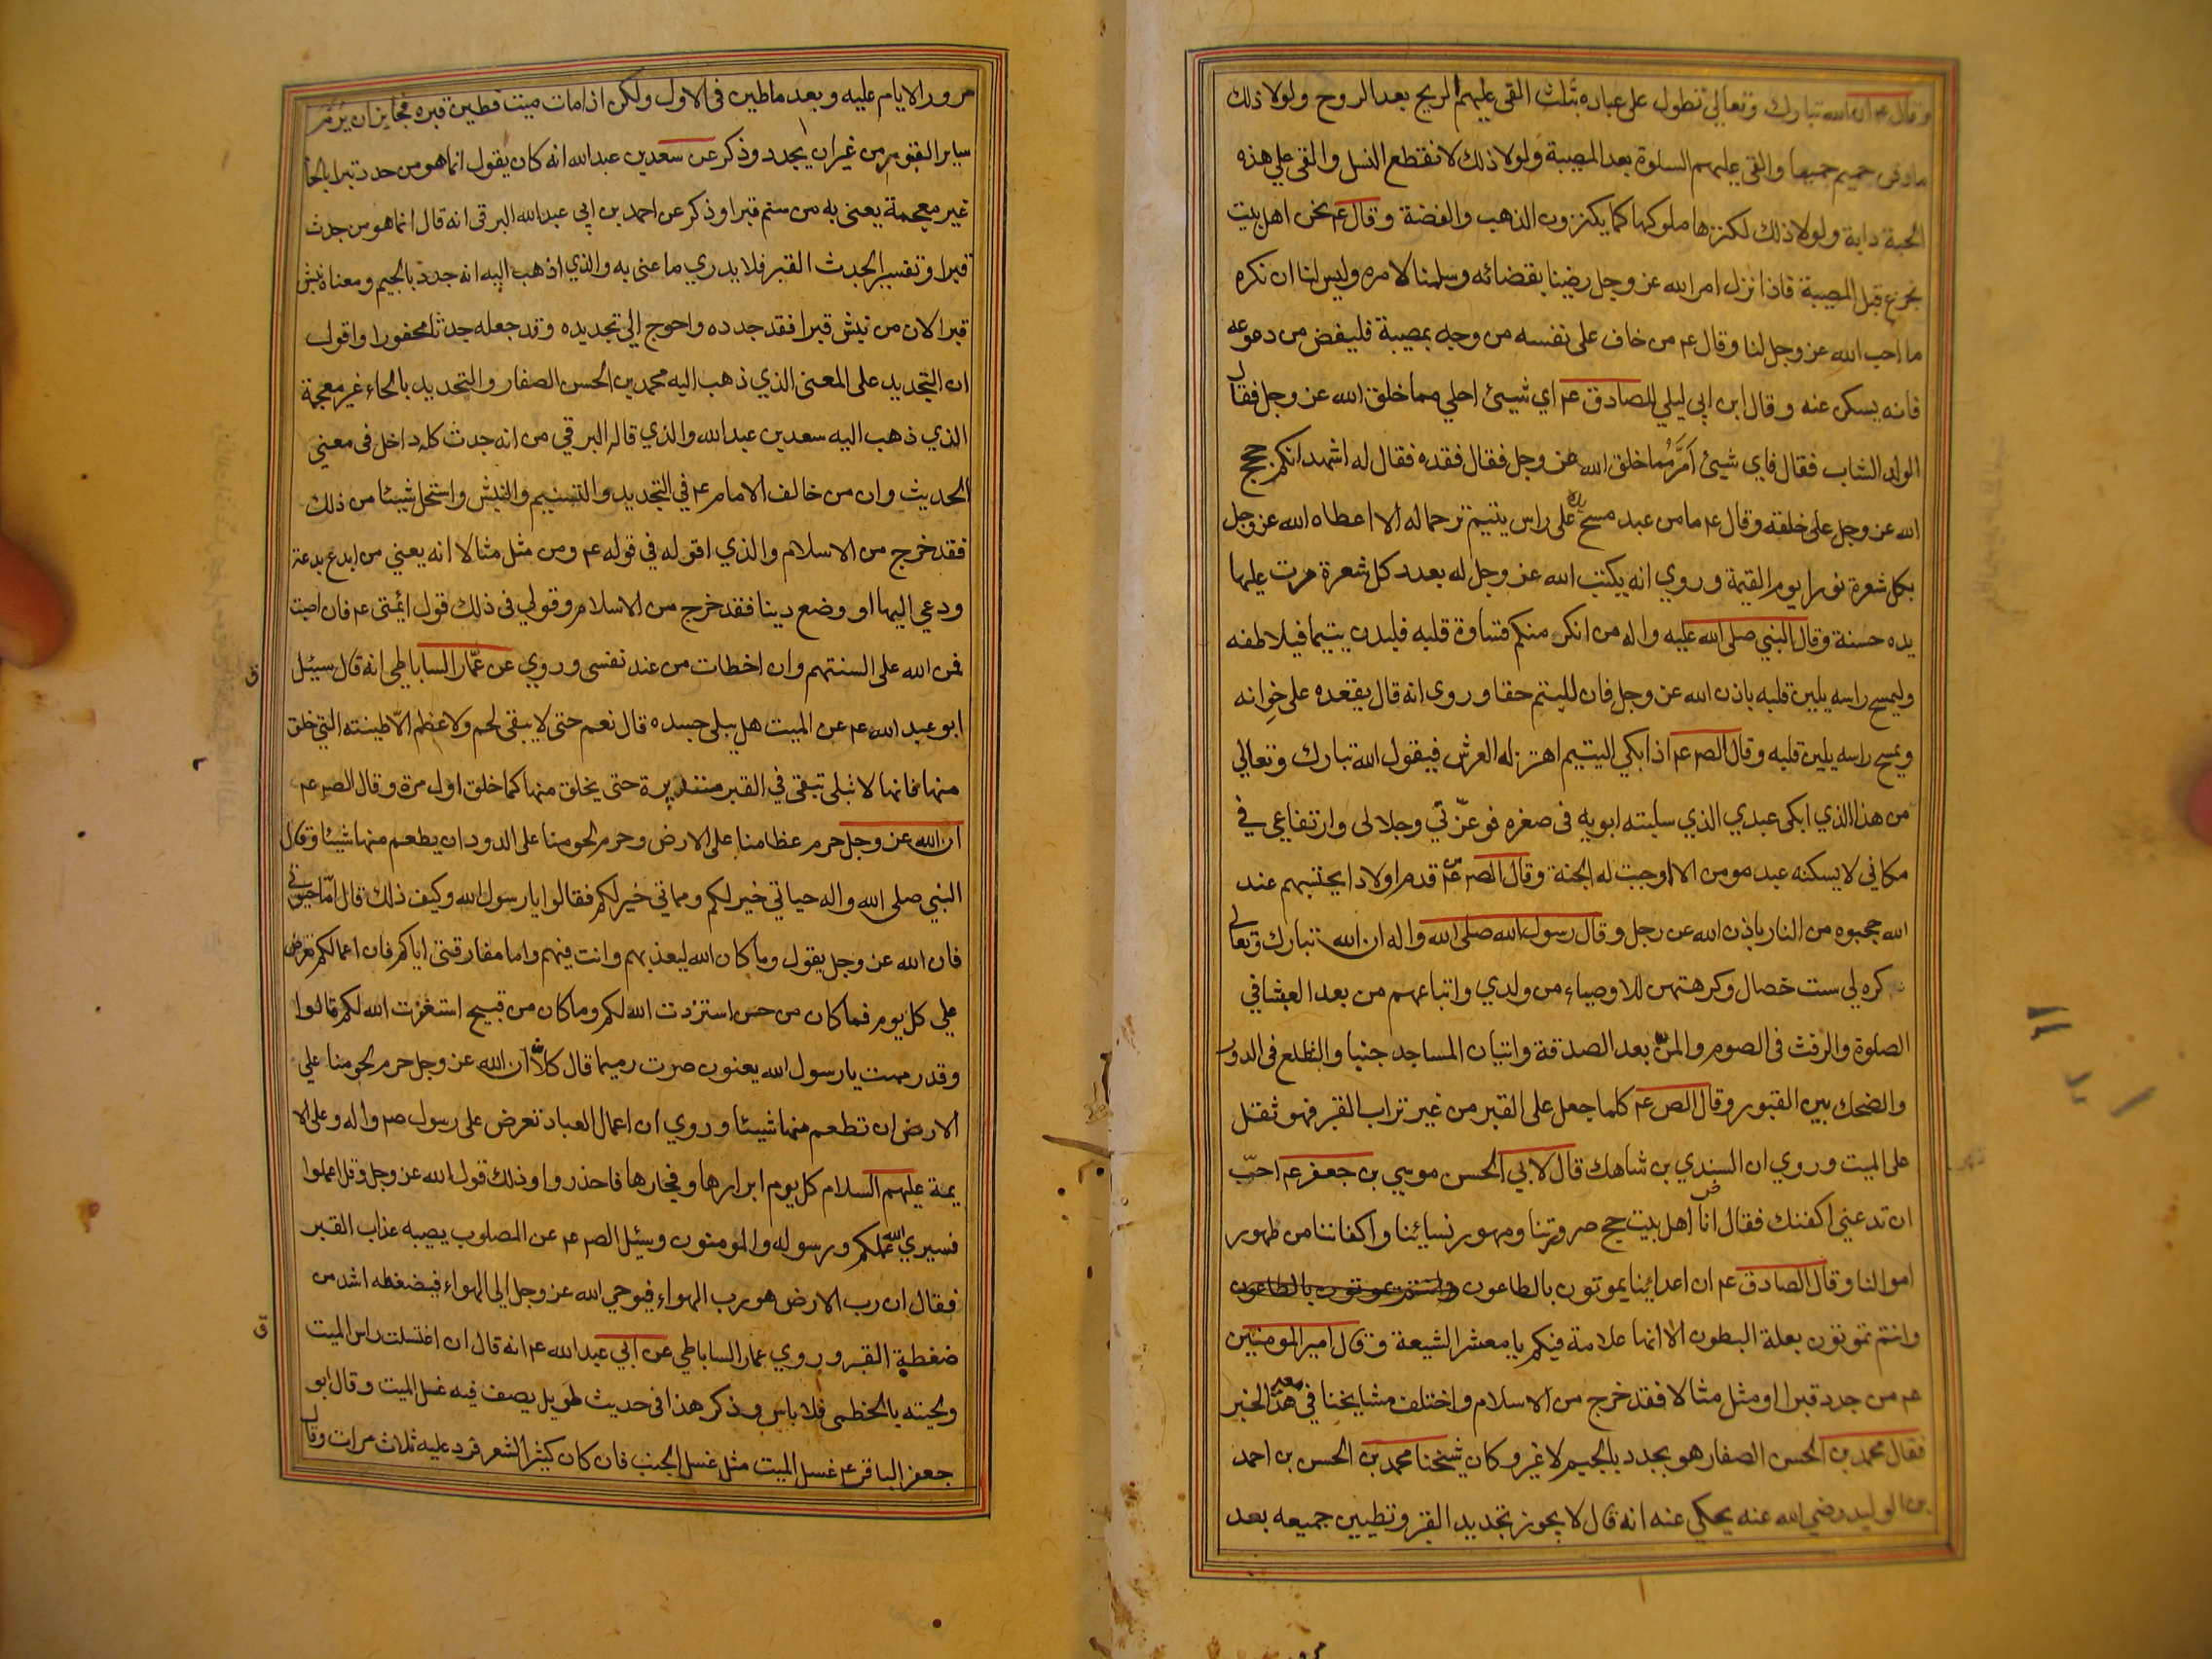 وقال ع ان الله تبارك وتعالى تطول على عباده بثلث القى عليهم الريح بعد الروح ولولا ذلك
ما دفن حميم حميما والقى عليهم السلوة بعد المصيبة ولولا ذلك لانقطع النسل والقى على هذه
الحبة دابة ولولا ذلك لكنزها ملوكها كما يكنزون الذهب والفضة وقال ع نحن اهل بيت
نجزع قبل المصيبة فاذا نزل امر الله عز وجل رضينا بقضائه وسلمنا لامره وليس لنا ان نكره
ما احب الله عز وجل لنا وقال ع من خاف على نفسه من وجه بمصيبة فليفض من دموعه
فانه يسكن عنه وقال ابن ابي ليلي للصادق ع اي شيئ احلي مما خلق الله عز وجل فقال
الولد الشاب فقال فاي شيئ اَمَرُّ مما خلق الله عز وجل فقال فقده فقال له اشهد انكم حجج
الله عز وجل على خلقه وقال ع ما من عبد مسح يده على راس يتيم ترحما له الا اعطاه الله عز وجل
بكل شعرة نورا يوم القيمة وروي انه يكتب الله عز وجل له بعدد كل شعرة مرت عليها
يده حسنة وقال النبي صلى الله عليه واله من انكر منكم قساوة قلبه فليدن يتيما فيلاطفه
وليمسح راسه يلين قلبه باذن الله عز وجل فان لليتم حقا وروى انه قال يقعده على خوانه
ويمسح راسه يلين قلبه وقال الص ع اذا بكي اليتيم اهتز له العرش فيقول الله تبارك وتعالي
من هذا الذي ابكى عبدي الذي سلبته ابويه فى صغره فوعزّتي وجلالى وارتفاعي في
مكاني لا يسكنه عبد مومن الا اوجبت له الجنة وقال الص ع من قدم اولادا يحتسبهم عند
الله حجبوه من النار باذن الله عز وجل وقال رسول الله صلى الله واله ان الله تبارك وتعالى
كره لي ست خصال وكرهتهن للاوصياء من ولدي واتباعهم من بعد العبث في
الصلوة والرفث فى الصوم والمن بعد الصدقة واتيان المساجد جنبا والتطلع فى الدور
والضحك بين القبور وقال الص ع كلما جعل على القبر من غير تراب القبر فهو ثقل
على الميت وروي ان السندي بن شاهك قال لابي الحسن موسي بن جعفر ع احبّ
ان تدعني اكفنك فقال انا اهل بيت حج صرورتنا ومهور نسائنا واكفاننا من طهور
اموالنا وقال الصادق ع ان اعدائنا يموتون بالطاعون وانتم تموتون بالطاعون
وانتم تموتون بعلة البطون الا انها علامة فيكم يا معشر الشيعة وقال امير المومنين
ع من جدد قبرا او مثل مثالا فقد خرج من الاسلام واختلف مشايخنا في معنى هذا الخبر
فقال محمد بن الحسن الصفار هو بجدد بالجيم لا غير وكان شيخنا محمد بن الحسن بن احمد
بن الوليد رضي الله عنه يحكي عنه انه قال لا يجوز تجديد القبر وتطيين جميعه بعد
مرور الايام عليه وبعد ما طين فى الاول ولكن اذا مات ميت فطين قبره فجايز ان يرم
ساير القبور من غير ان يجدد وذكر عن سعد بن عبد الله انه كان يقول انما هو من حدد قبرا بالحا
غير معجمة يعنى به من سنم قبرا وذكر عن احمد بن ابي عبد الله البرقى انه قال انما هو من جدث
قبرا وتفسير الجدث القبر فلا يدري ما عنى به والذي اذهب اليه انه جدد بالجيم ومعناه نبش
قبرا لان من نبش قبرا فقد جدده واحوج الي تجديده وقد جعله جدثا محفورا واقول
ان التجديد على المعنى الذي ذهب اليه محمد بن الحسن الصفار والتحديد بالحاء غير معجمة
الذي ذهب اليه سعد بن عبد الله والذي قاله البرقي من انه جدث كله داخل فى معني
الحديث وان من خالف الامام ع في التجديد والتسنيم والنبش واستحل شيئا من ذلك
فقد خرج من الاسلام والذي اقوله في قوله ع ومن مثل مثالا انه يعني من ابدع بدعة
ودعي اليها او وضع دينا فقد خرج من الاسلام وقولي فى ذلك قول ائمتى ع فان اصبت
فمن الله على السنتهم وان اخطات من عند نفسى وروي عن عمّار الساباطي انه قال سيئل
ابو عبد الله ع عن الميت هل يبلى جسده قال نعم حتى لا يبقى لحم ولا عظم الّا طينته التى خلق
منها فانها لا تبلى تبقى في القبر مستديرة حتى يخلق منها كما خلق اول مرة وقال الص ع
ان الله عز وجل حرم عظامنا على الارض وحرم لحومنا على الدود ان يطعم منها شيئا وقال
النبي صلى الله واله حياتي خير لكم ومماتي خير لكم فقالوا يا رسول الله وكيف ذلك قال امّا حيوتي
فان الله عز وجل يقول وما كان الله ليعذبهم وانت فيهم واما مفارقتى اياكم فان اعمالكم تعرض
علي كل يوم فما كان من حسن استزدت الله لكم وما كان من قبيح استغفرت الله لكم قالوا
وقد رممت يا رسول الله يعنون صرت رميما قال كلّا ان الله عز وجل حرم لحومنا علي
الارض ان تطعم منها شيئا وروي ان اعمال العباد تعرض على رسول ص واله وعلى الا
يمة عليهم السلام كل يوم ابرارها وفجارها فاحذروا وذلك قول الله عز وجل وقل اعملوا
فسيري الله عملكم ورسوله والمومنون وسيئل الص ع عن المصلوب يصيبه عذاب القبر
فقال ان رب الارض هو رب الهواء فيوحي الله عز وجل الى الهواء فيضغطه اشد من
ضغطة القبر وروي عمار الساباطي عن ابي عبد الله ع انه قال ان اغتسلت راس الميت
ولحيته بالخطمى فلا باس وذكر هذا فى حديث طويل يصف فيه غسل الميت وقال ابو
جعفر الباقر ع غسل الميت مثل غسل الجنب فان كان كثير الشعر فرد عليه ثلاث مرات وقال